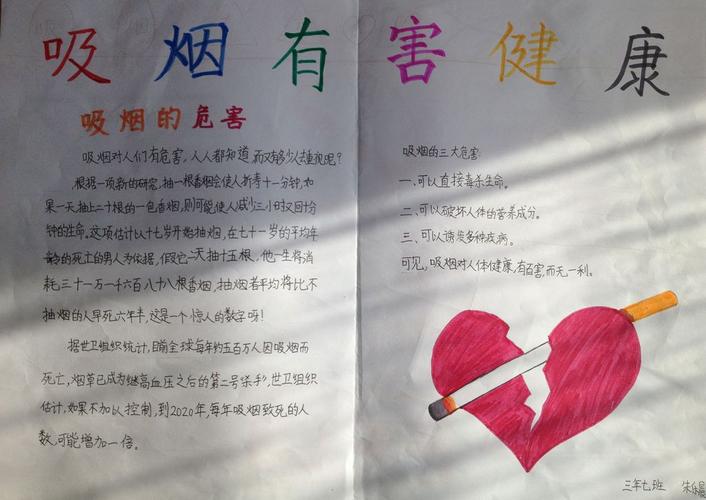 吸烟有害健康
吸烟的危害
吸烟对人们有危害,人人都知道,而又有多少人去重视呢?
根据一项新的研究,抽一根香烟会使人折寿十一分钟,如
果一天抽上二十根的一包香烟,则可能使人减少三小时又四十
分钟的生命。这项估计以十七岁开始抽烟,在七十一岁的平均年
龄的死亡的男人为依据,假定一天抽十五根,他一生将消
耗三十一万一千六百八十八根香烟,抽烟者平均将比不
抽烟的人早死六年半,这是一个惊人的数字呀!
据世卫组织统计,目前全球每年约五百万人因吸烟而
死亡,烟草已成为继高血压之后的第二号杀手,世卫组织
估计,如果不加以控制,到2020年,每年吸烟致死的人
数,可能增加一倍。
吸烟的三大危害:
一、可以直接毒杀生命。
二、可以破坏人体的营养成分。
三、可以诱发多种疾病。
可见,吸烟对人体健康,有百害,而无一利。
三年七班 朱